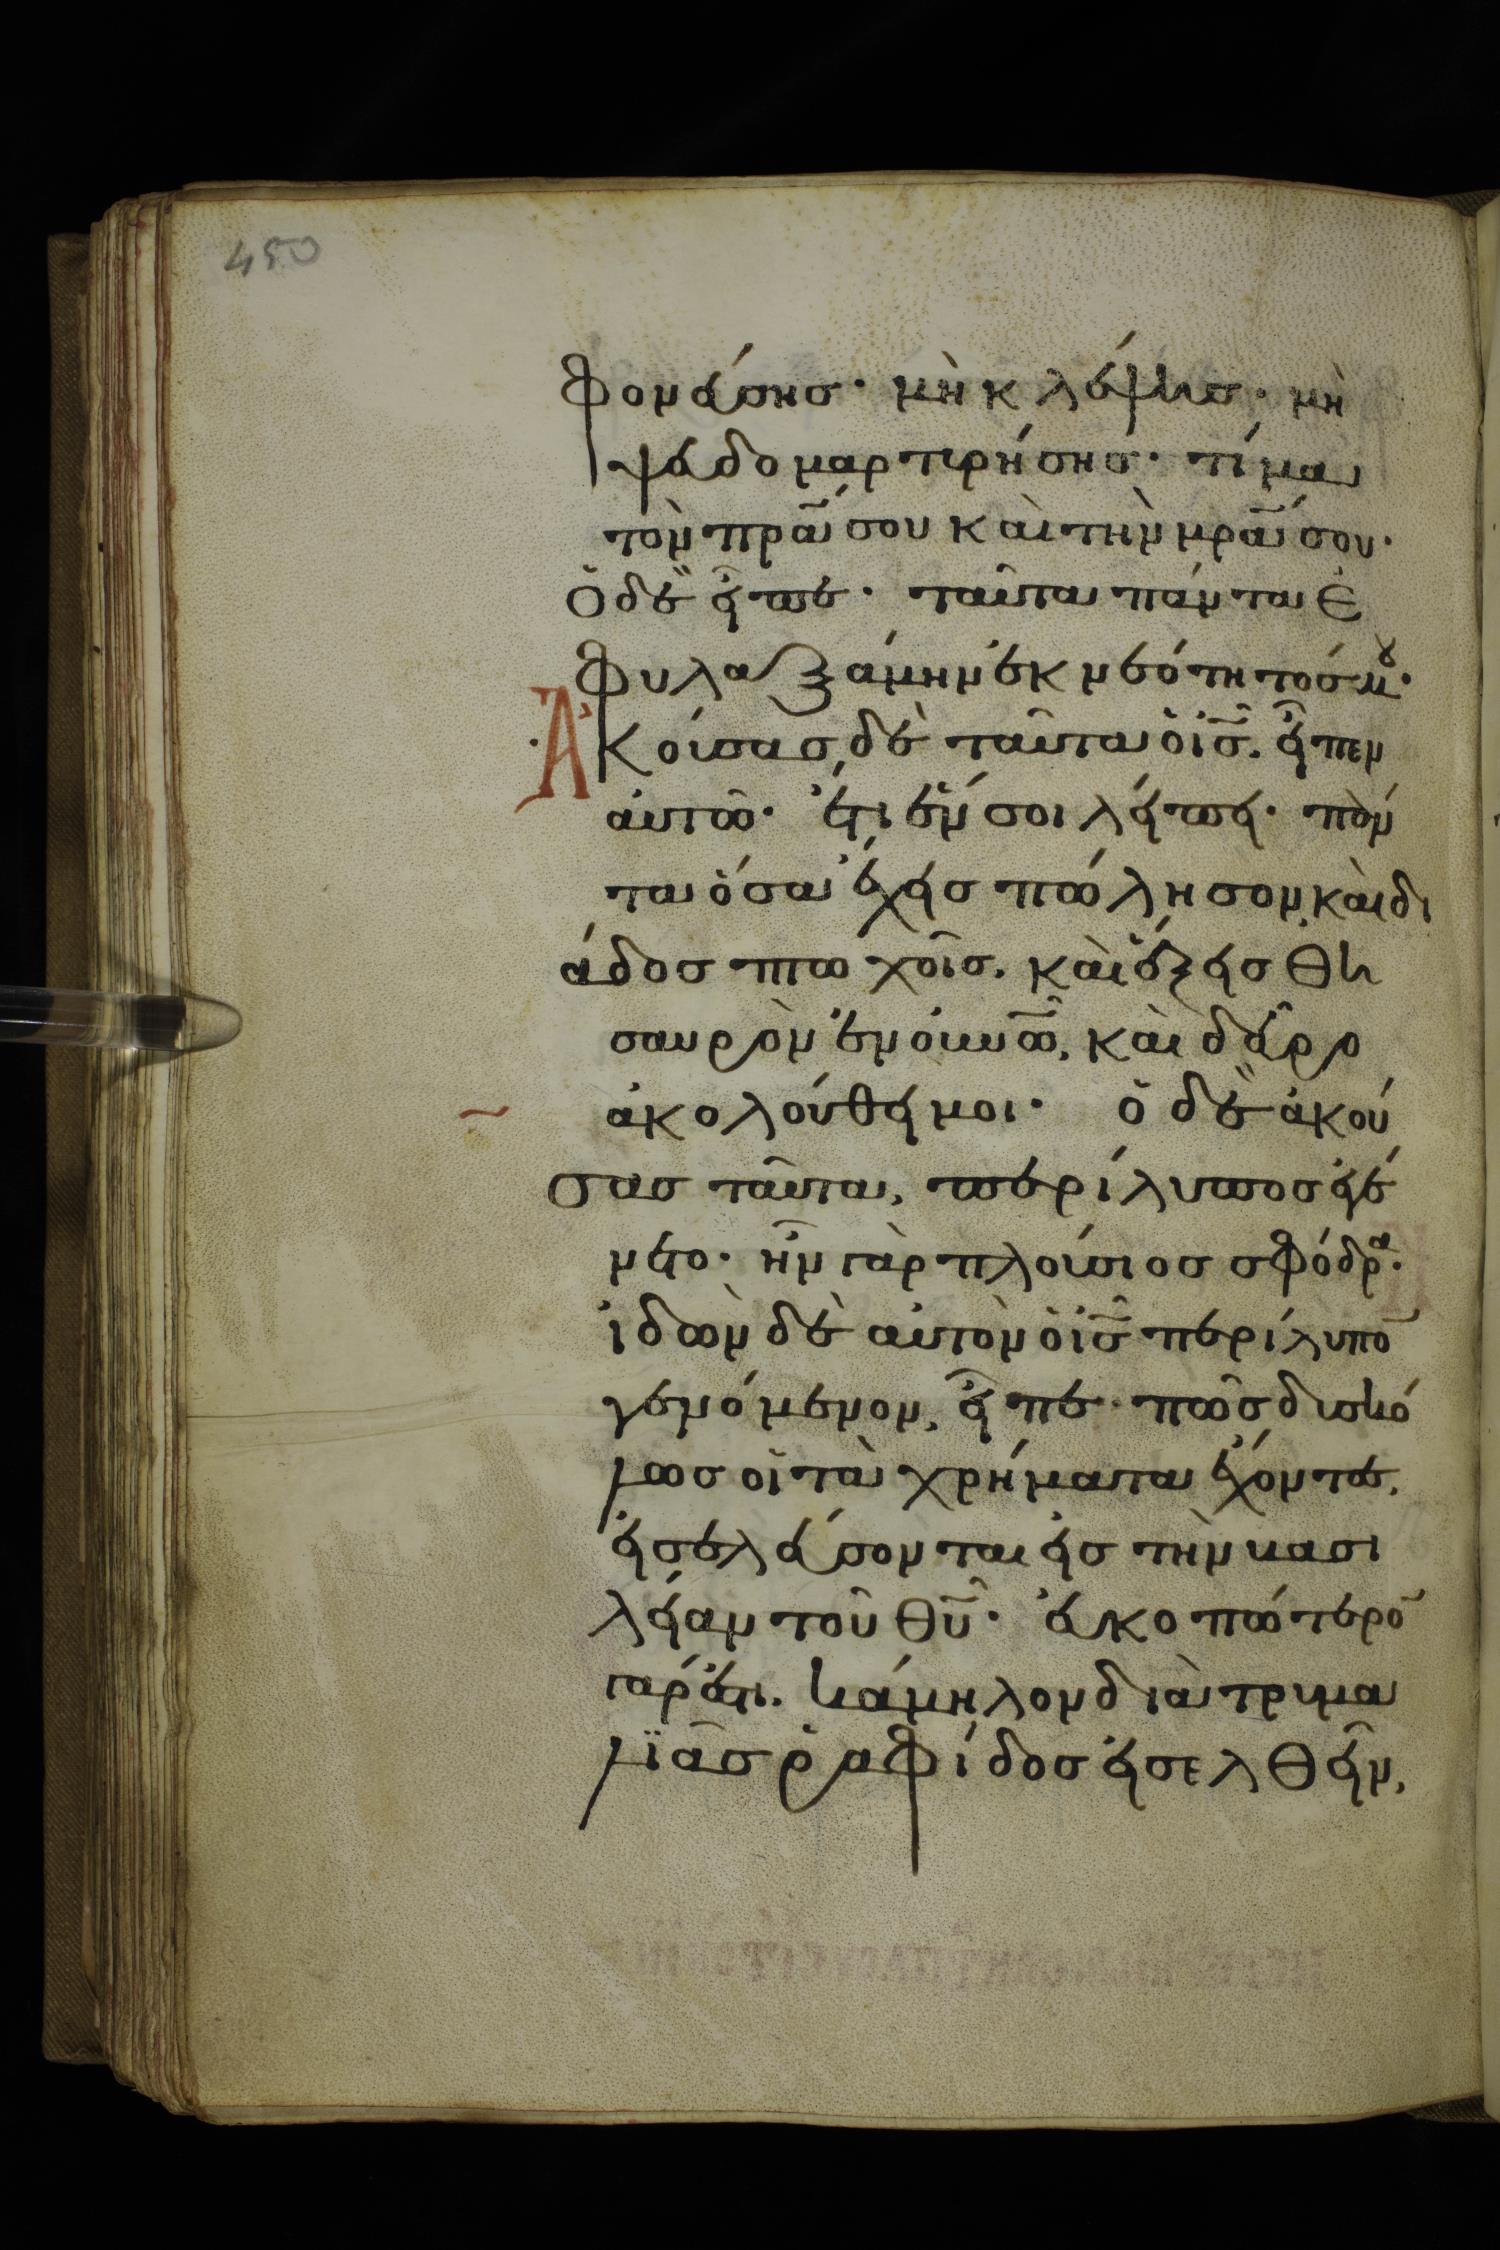 450
φονεύσης· μὴ κλέψης· μὴ
ψευδομαρτυρήσης· τίμα
τὸν πρα̅ σου καὶ τὴν μρα̅ σου·
ὁ δὲ εἶπε· ταῦτα πάντα ἐ
φυλαξάμην ἐκ νεότητός μου·
Ἀκούσας δὲ ταῦτα ὁ ις̅. εἶπεν
αὐτῶ· ἔτι ἕν σοι λείπει· πάν
τα ὅσα ἔχεις πώλησον, καὶ δι
άδος πτωχοῖς. καὶ ἕξεις θη
σαυρὸν ἐν ουνω̅, καὶ δεῦρο
ἀκολούθει μοι· ὁ δὲ ἀκού
σας ταῦτα, περίλυπος ἐγέ
νετο· ἦν γὰρ πλούσιος σφόδρα·
ἰδὼν δὲ αὐτὸν ὁ ις̅ περίλυπο̅
γενόμενον, εἶπε· πῶς δυσκό
λως οἱ τὰ χρήματα ἔχοντες,
εἰσελεύσονται εἰς τὴν βασι
λείαν τοῦ θυ̅· εὐκοπώτερο̅
γάρ ἐστι. κάμηλον διὰ τρυμα
λϊᾶς ῥαφίδος εἰσελθεῖν,